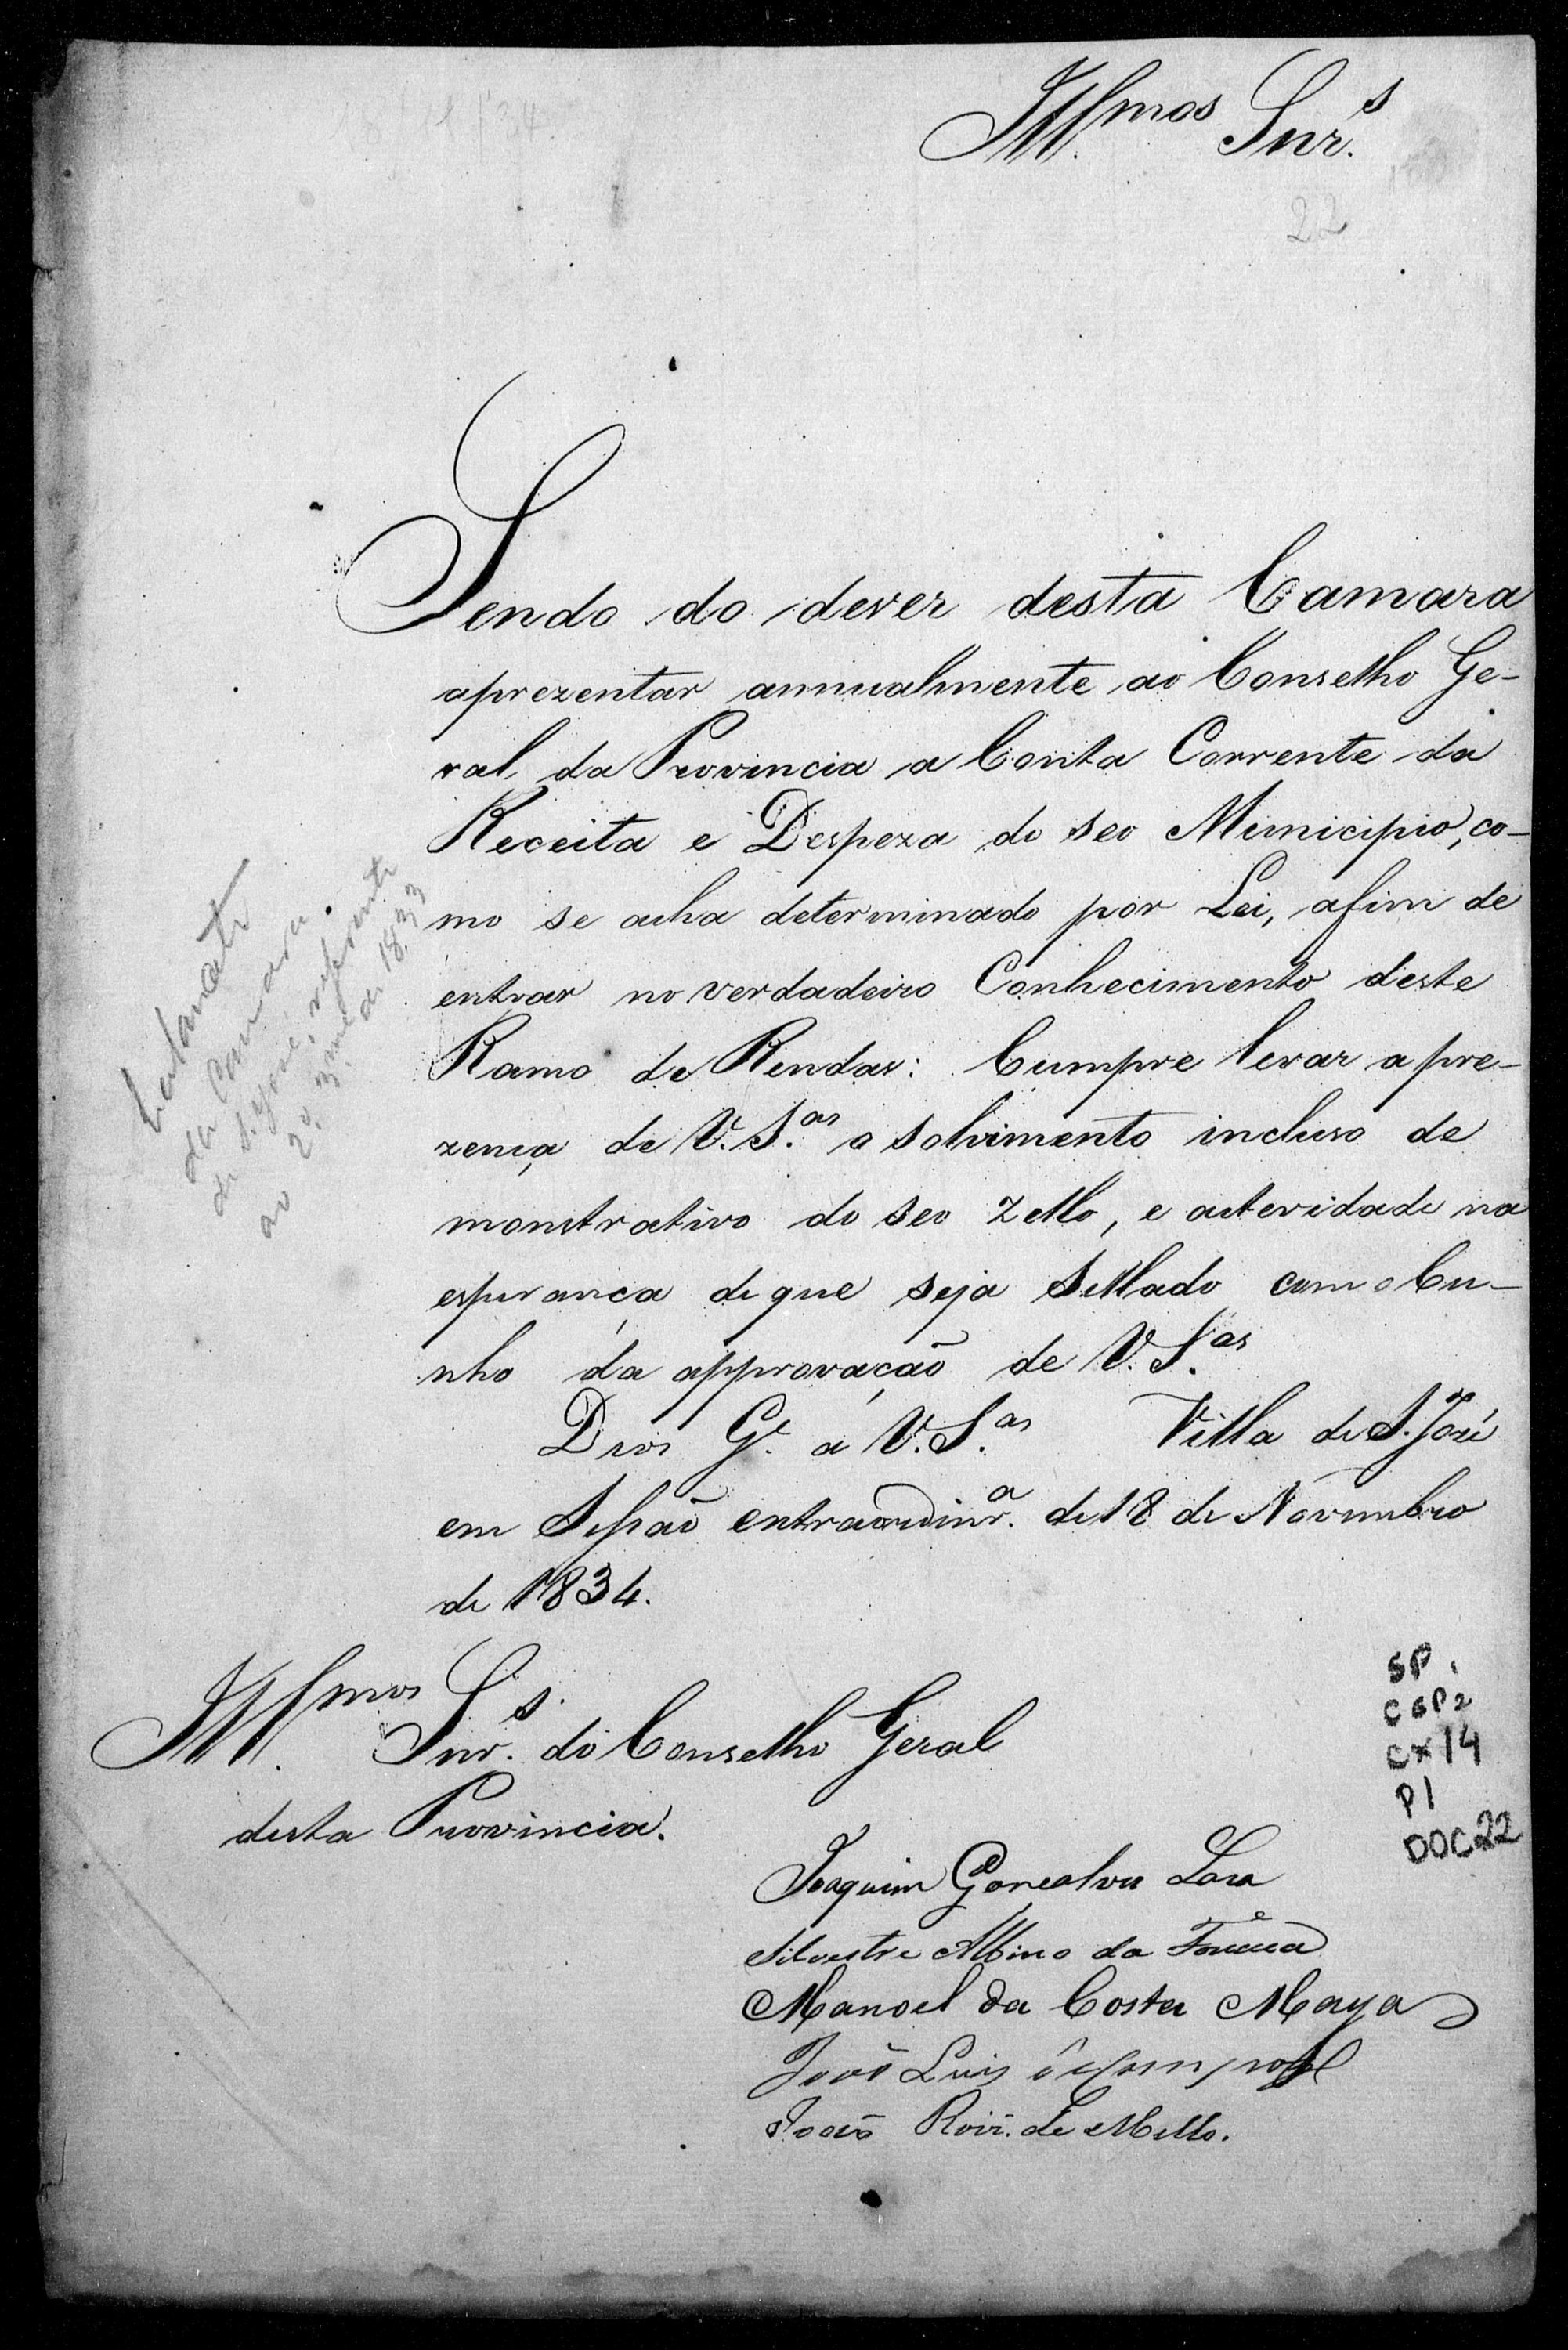 Illmos Snr.s
22
Sendo do dever desta Camara
aprezentar annualmente ao Conselho Ge-
ral da Provincia a Conta Corrente da
Receita e Despeza do seo Municipio, co-
mo se acha determinado por Lei, afim de
entrar no verdadeiro Conhecimento deste
Ramo de Rendas: Cumpre levar a pre-
zença de V. S.as o solvimento incluso de
monstrativo do seo Zello, e acteridade na
esperança de que seja Sellado com o Cu-
nho da approvação de V. S.as
Deos G.e a V. S.as Villa de S. José
em Sessão entraordinr.a de 18 de Novembro
de 1834.
Illmos Snr.s do Conselho Geral
desta Provincia.
Joaquim Gonçalves Lara
Silvestre Albino da Fonceca
Manoel da Costa Maya
João Luis
João Roiz. de Mello.
da Camara
de S. José, referente
ao 2º 3me de 1833
SP
CGP2
CX14
P1
DOC22